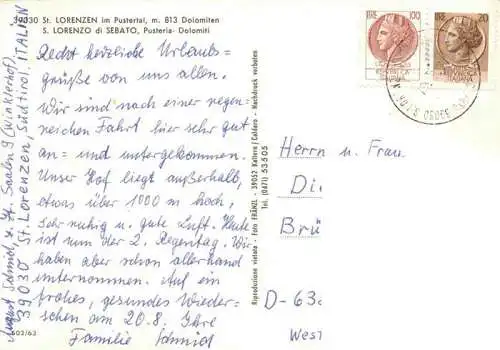 39030 St. LORENZEN im Pustertal, m. 813 Dolomiten
S. LORENZO di SEBATO, Pusteria - Dolomiti
Recht herzliche Urlaubs-
grüße von uns allen.
Wir sind nach einer regen-
reichen Fahrt hier sehr gut
an= und untergekommen.
Unser Hof liegt außerhalb,
etwas über 1000 m hoch,
sehr ruhig u. gute Luft. Heute
ist um der 2. Regentag. Wir
haben aber schon allerhand
unternommen. Auf ein
frohes, gesundes Wieder-
sehen am 20.8. Ihre
Familie Schmid
August Schmid, z. Zt. Saalen 9 (Winklerhof)
39030 St. Lorenzen, Südtirol, ITALIEN
Riproduzione vietata - Foto FRÄNZL - 39052 Kaltern/Caldaro - Nachdruck verboten
Tel. (0471) 53505
LIRE 100
LIRE 20
39030
Herrn u. Frau
Di
Brü
D-63
West
502/63